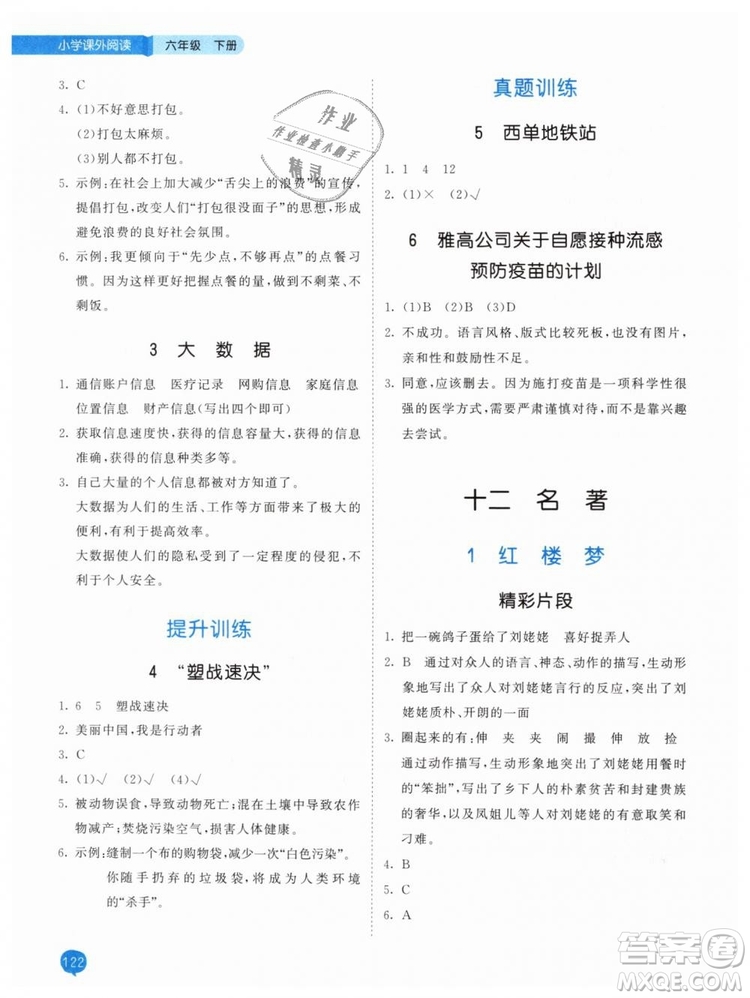 小学课外阅读 六年级 下册
3. C
4. (1)不好意思打包。
(2)打包太麻烦。
(3)别人都不打包。
5. 示例:在社会上加大减少“舌尖上的浪费”的宣传,
提倡打包,改变人们“打包很没面子”的思想,形成
避免浪费的良好社会氛围。
6. 示例:我更倾向于“先少点,不够再点”的点餐习
惯。因为这样更好把握点餐的量,做到不剩菜、不
剩饭。
3 大 数 据
1. 通信账户信息 医疗记录 网购信息 家庭信息
位置信息 财产信息(写出四个即可)
2. 获取信息速度快,获得的信息容量大,获得的信息
准确,获得的信息种类多等。
3. 自己大量的个人信息都被对方知晓。
大数据为人们的生活、工作等方面带来了极大的
便利,有利于提高效率。
大数据使人们的隐私受到了一定程度的侵犯,不
利于个人安全。
提升训练
4 “塑战速决”
1. 6 5 塑战速决
2. 美丽中国,我是行动者
3. C
4. (1)√ (2)√ (3)× (4)√
5. 被动物误食,导致动物死亡;混在土壤中导致农作
物减产;焚烧污染空气,损害人体健康。
6. 示例:缝制一个布的购物袋,减少一次“白色污染”。
你随手扔弃的垃圾袋,会成为人类环境
的“杀手”。
122
真题训练
5 西单地铁站
1. 1 4 12
2. (1)× (2)√
6 雅高公司关于自愿接种流感
预防疫苗的计划
1. (1)B (2)B (3)D
2. 不成功。语言风格、版式比较死板,也没有图片,
亲和性和鼓励性不足。
3. 同意,应该删去。因为施打疫苗是一项科学性很
强的医学方式,需要严肃谨慎对待,而不是靠兴趣
去尝试。
十二 名 著
1 红 楼 梦
精彩片段
1. 把一碗鸽子蛋给了刘姥姥 喜好捉弄人
2. B 通过对众人的语言、神态、动作的描写,生动形
象地写出了众人对刘姥姥言行的反应,突出了刘
姥姥质朴、开朗的一面
3. 圈起来的有:伸 夹 夹 闹 撮 放 捡
通过动作描写,生动形象地写出了刘姥姥用餐时
的“笨拙”,写出了乡下人的朴素贫苦和封建贵族
的奢华,以及凤姐儿等人对刘姥姥的捉弄和
刁难。
4. B
5. C
6. A
作业
作业检查小帮手
精灵
答案圈
MXQE.COM